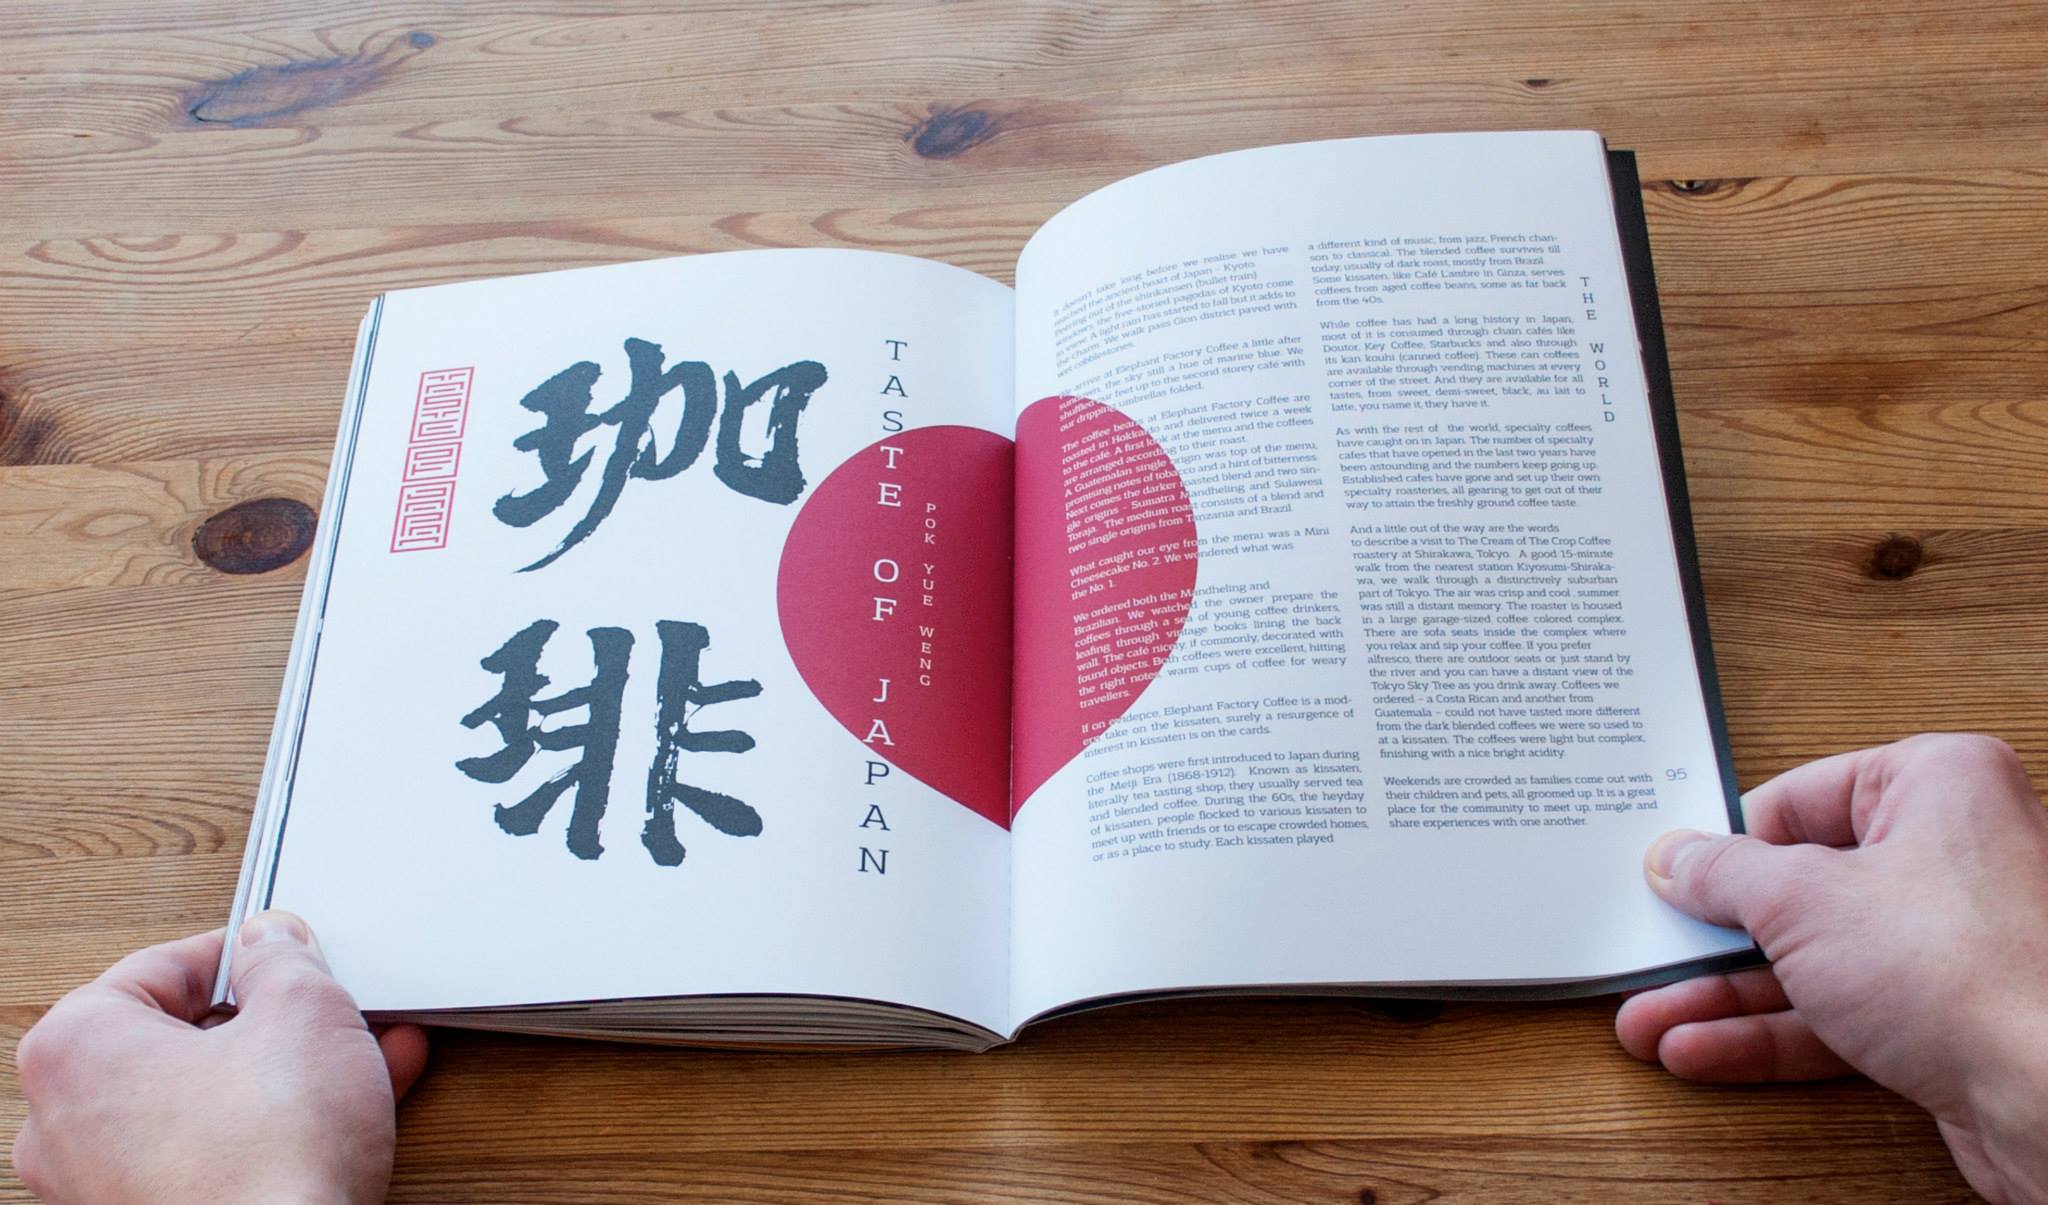 珈
琲
TASTE OF JAPAN
POK YUE WENG
It doesn't take long before we realise we have
reached the ancient heart of Japan – Kyoto.
Peering out of the shinkansen (bullet train)
windows, the five-storied pagodas of Kyoto come
in view. A light rain has started to fall but it adds to
the charm. We walk pass Gion district paved with
wet cobblestones.
We arrive at Elephant Factory Coffee a little after
sundown, the sky still a hue of marine blue. We
shuffled our feet up to the second storey café with
our dripping umbrellas folded.
The coffee beans at Elephant Factory Coffee are
roasted in Hokkaido and delivered twice a week
to the café. A first look at the menu and the coffees
are arranged according to their roast.
A Guatemalan single origin was top of the menu,
promising notes of tobacco and a hint of bitterness.
Next comes the darker roasted blend and two sin-
gle origins - Sumatra Mandheling and Sulawesi
Toraja. The medium roast consists of a blend and
two single origins from Tanzania and Brazil.
What caught our eye from the menu was a Mini
Cheesecake No. 2. We wondered what was
the No. 1.
We ordered both the Mandheling and
Brazilian. We watched the owner prepare the
coffees through a sea of young coffee drinkers,
leafing through vintage books lining the back
wall. The café nicely, if commonly, decorated with
found objects. Both coffees were excellent, hitting
the right notes, warm cups of coffee for weary
travellers.
If on evidence, Elephant Factory Coffee is a mod-
ern take on the kissaten, surely a resurgence of
interest in kissaten is on the cards.
Coffee shops were first introduced to Japan during
the Meiji Era (1868-1912). Known as kissaten,
literally tea tasting shop, they usually served tea
and blended coffee. During the 60s, the heyday
of kissaten, people flocked to various kissaten to
meet up with friends or to escape crowded homes,
or as a place to study. Each kissaten played
a different kind of music, from jazz, French chan-
son to classical. The blended coffee survives till
today, usually of dark roast, mostly from Brazil.
Some kissaten, like Café L'ambre in Ginza, serves
coffees from aged coffee beans, some as far back
from the 40s.
While coffee has had a long history in Japan,
most of it is consumed through chain cafés like
Doutor, Key Coffee, Starbucks and also through
its kan kouhi (canned coffee). These can coffees
are available through vending machines at every
corner of the street. And they are available for all
tastes, from sweet, demi-sweet, black, au lait to
latte, you name it, they have it.
As with the rest of the world, specialty coffees
have caught on in Japan. The number of specialty
cafes that have opened in the last two years have
been astounding and the numbers keep going up.
Established cafes have gone and set up their own
specialty roasteries, all gearing to get out of their
way to attain the freshly ground coffee taste.
And a little out of the way are the words
to describe a visit to The Cream of The Crop Coffee
roastery at Shirakawa, Tokyo. A good 15-minute
walk from the nearest station Kiyosumi-Shiraka-
wa, we walk through a distinctively suburban
part of Tokyo. The air was crisp and cool , summer
was still a distant memory. The roaster is housed
in a large garage-sized coffee colored complex.
There are sofa seats inside the complex where
you relax and sip your coffee. If you prefer
alfresco, there are outdoor seats or just stand by
the river and you can have a distant view of the
Tokyo Sky Tree as you drink away. Coffees we
ordered – a Costa Rican and another from
Guatemala – could not have tasted more different
from the dark blended coffees we were so used to
at a kissaten. The coffees were light but complex,
finishing with a nice bright acidity.
Weekends are crowded as families come out with
their children and pets, all groomed up. It is a great
place for the community to meet up, mingle and
share experiences with one another.
THE WORLD
95